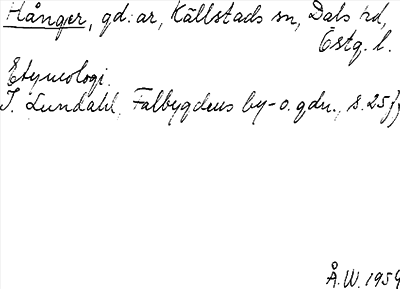 Hånger, gd:ar, Källstads sn, Dals hd,
Östg. l.
Etymologi.
I. Lundahl, Falbygdens by- o. gdn., s. 25 ff
Å. W. 1959